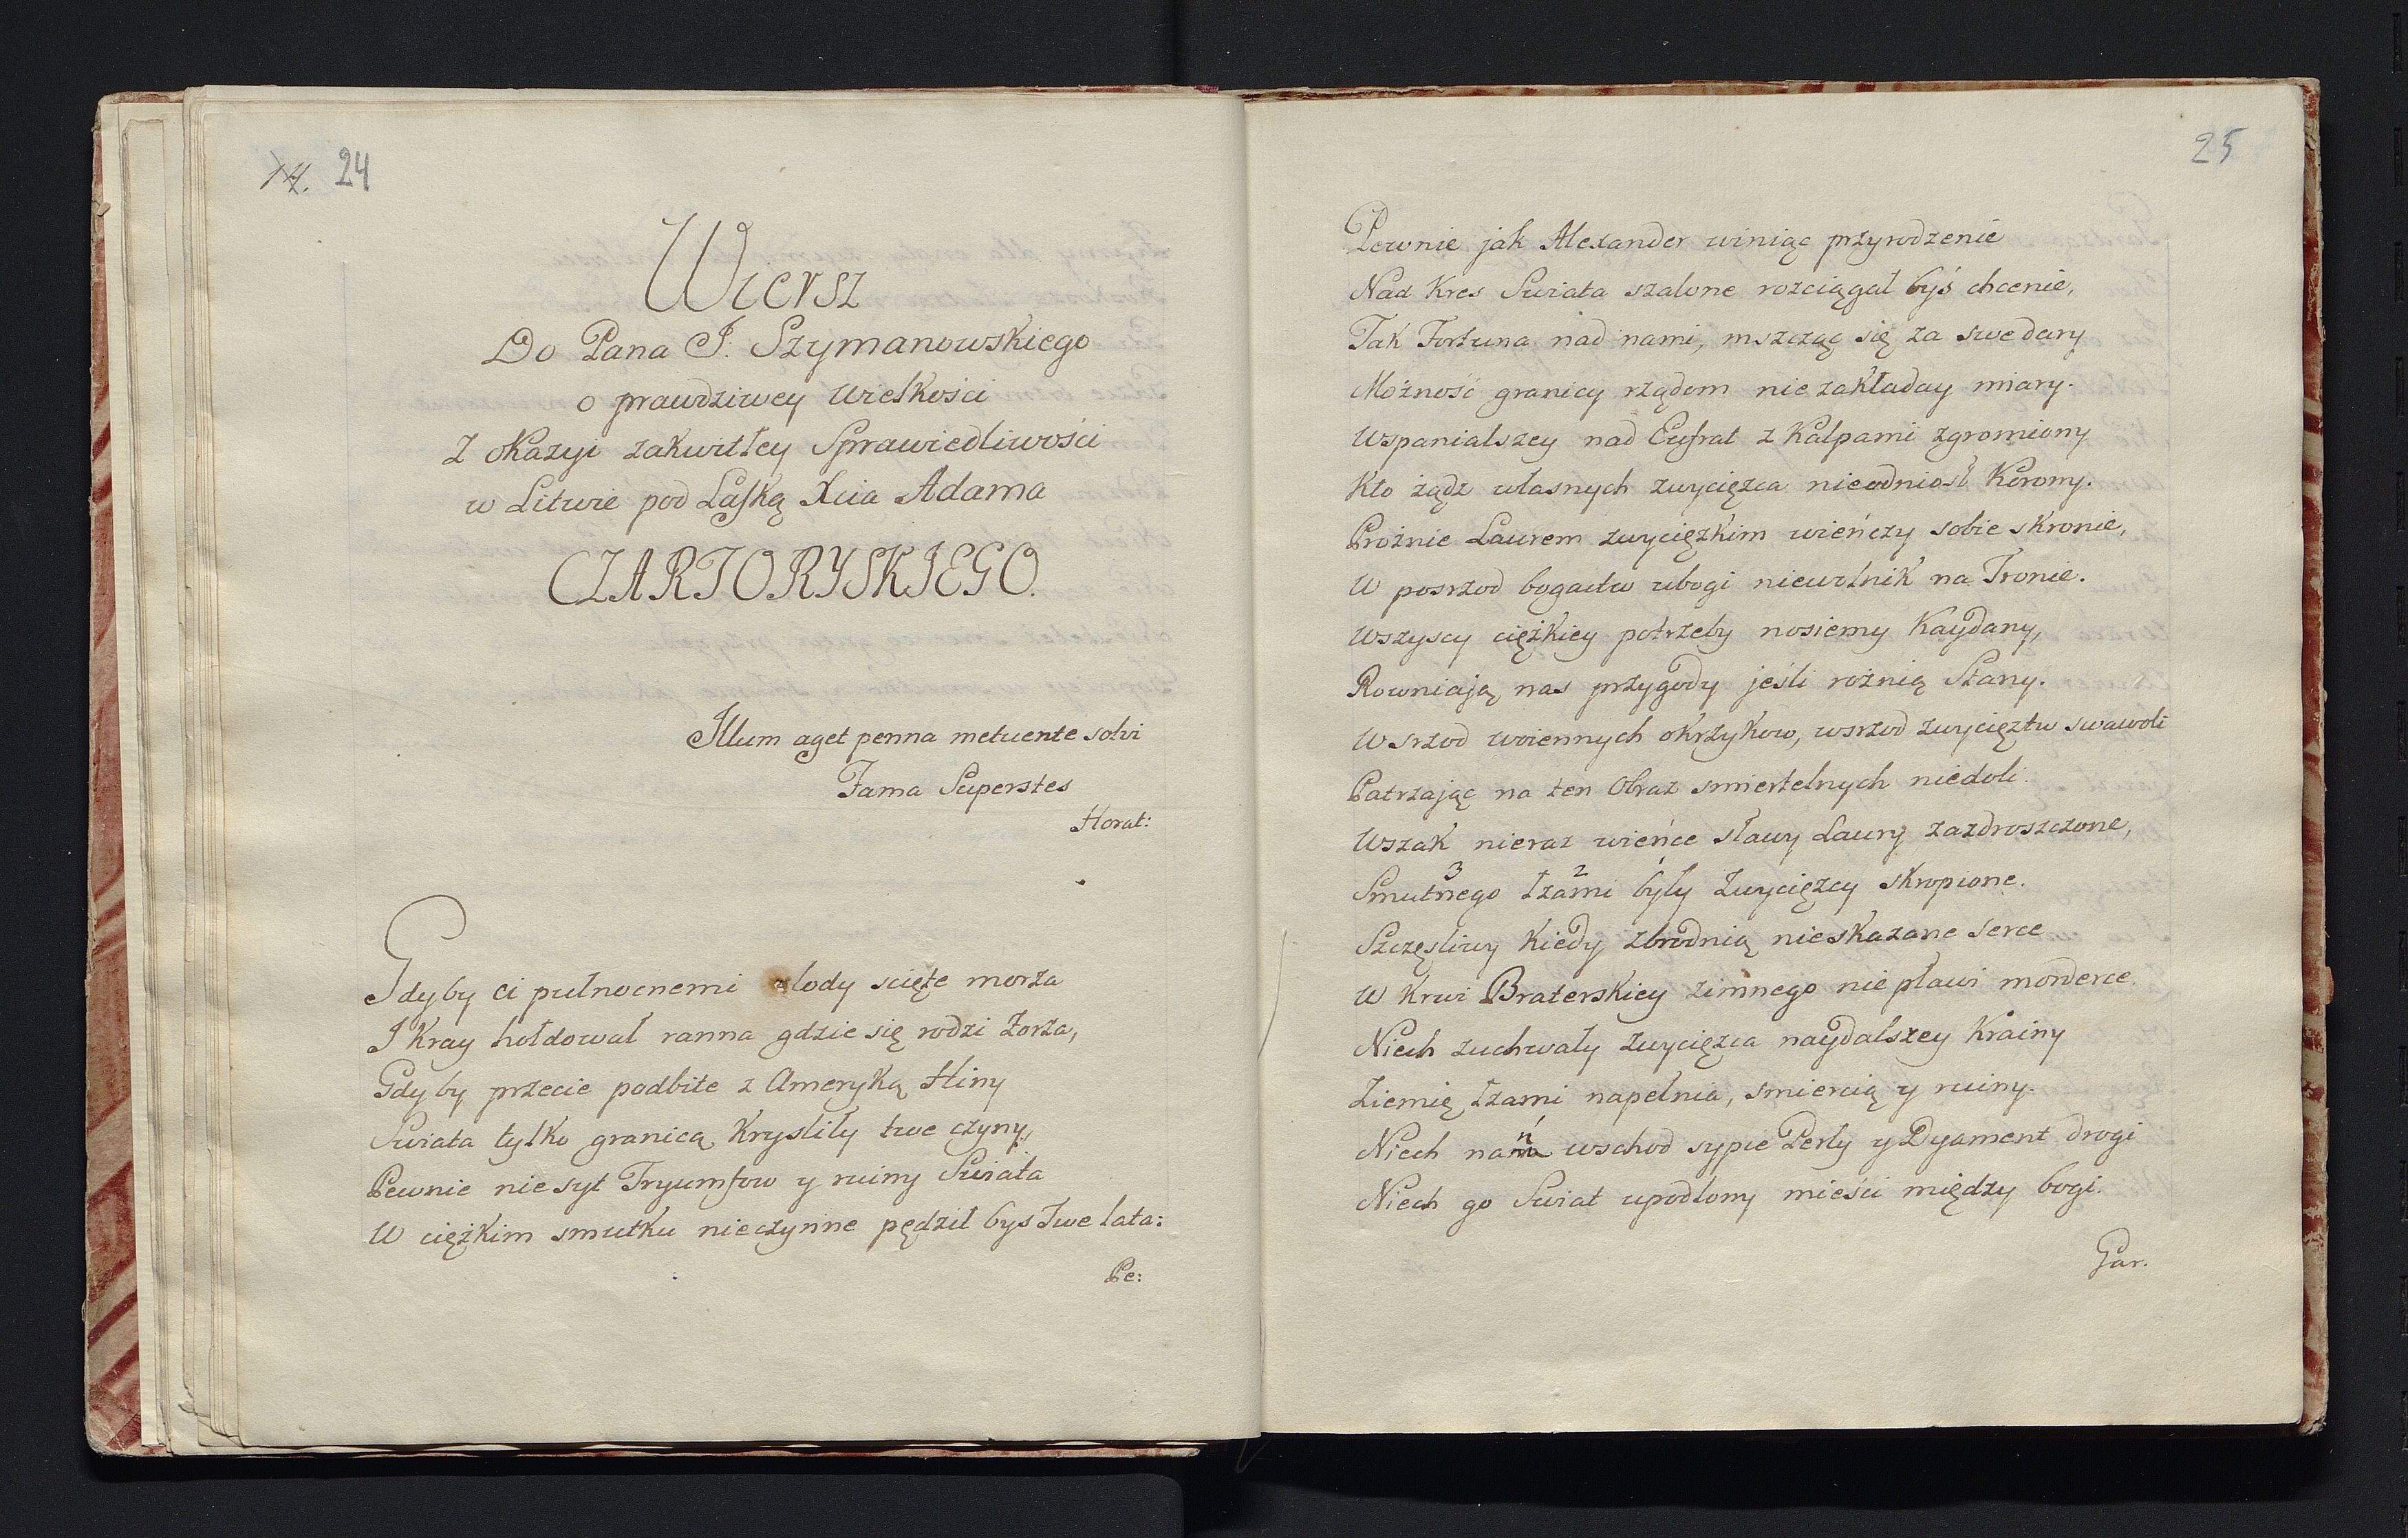 14. 24
Wiersz
Do Pana J. Szymanowskiego
o prawdziwey wielkości
z okazyi zakwitłey Sprawiedliwości
w Litwie pod Laską Xcia Adama
CZARTORYSKIEGO.
Illum aget penna metuente solvi
Fama Superstes
Horat:
Gdyby ci pułnocnemi lody scięte morza
I Kray hołdował ranna gdzie się rodzi Zorza,
Gdyby przecie podbite z Ameryką Hiny
Swiata tylko granicą Krysliły twe czyny,
Pewnie nie syt Tryumfow y ruiny Swiata
W ciężkim smutku nieczynne pędził bys Twe lata:
Pe:
25
Pewnie jak Alexander winiąc przyrodzenie
Nad Kres Swiata szalone rozciągał byś chcenie,
Tak Fortuna nad nami, mszcząc się za swe dary
Możność granicy rządom nie zakładay miary.
Wspanialszey nad Eufrat z Kalpami zgromiony
Kto żądz własnych zwycięzca nieodniosł Korony.
Prożnie Laurem zwycięzkim wieńczy sobie skronie,
W posrzod bogactw ubogi niewolnik na Tronie.
Wszyscy ciężkiey potrzeby nosiemy Kaydany,
Rowniają nas przygody jeśli rożnią Stany.
Wsrzod woiennych okrzykow, wsrzod zwycięztw swawoli
Patrzając na ten Obraz smiertelnych niedoli.
Wszak nieraz wieńce sławy Laury zazdroszczone,
3 2
Smutnego łzami były Zwycięzcy skropione.
Szczęsliwy Kiedy zbrodnią nieskazane serce
W Krwi Braterskiey zimnego nie pławi morderce.
Niech zuchwały zwycięzca naydalszey Krainy
Ziemię łzami napełnia, smiercią y ruiny.
ń
Niech na wschod sypie Perły y Dyament drogi
Niech go Swiat upodlony mieści między bogi.
Gar.